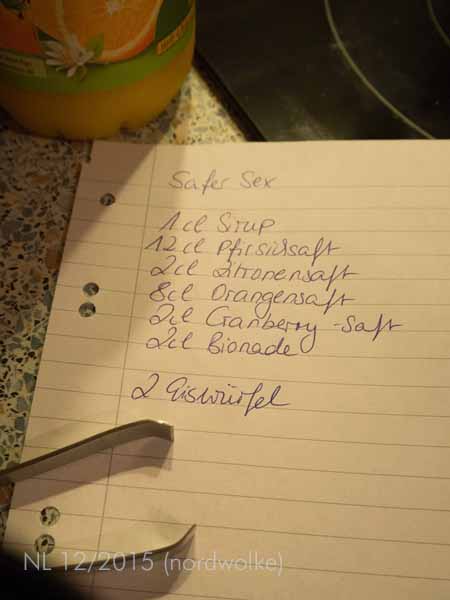 Safer Sex
1 cl Sirup
12 cl Pfirsichsaft
2 cl Zitronensaft
8 cl Orangensaft
2 cl Cranberry-Saft
2 cl Bionade
2 Eiswürfel
NL 12/2015 (nordwolke)